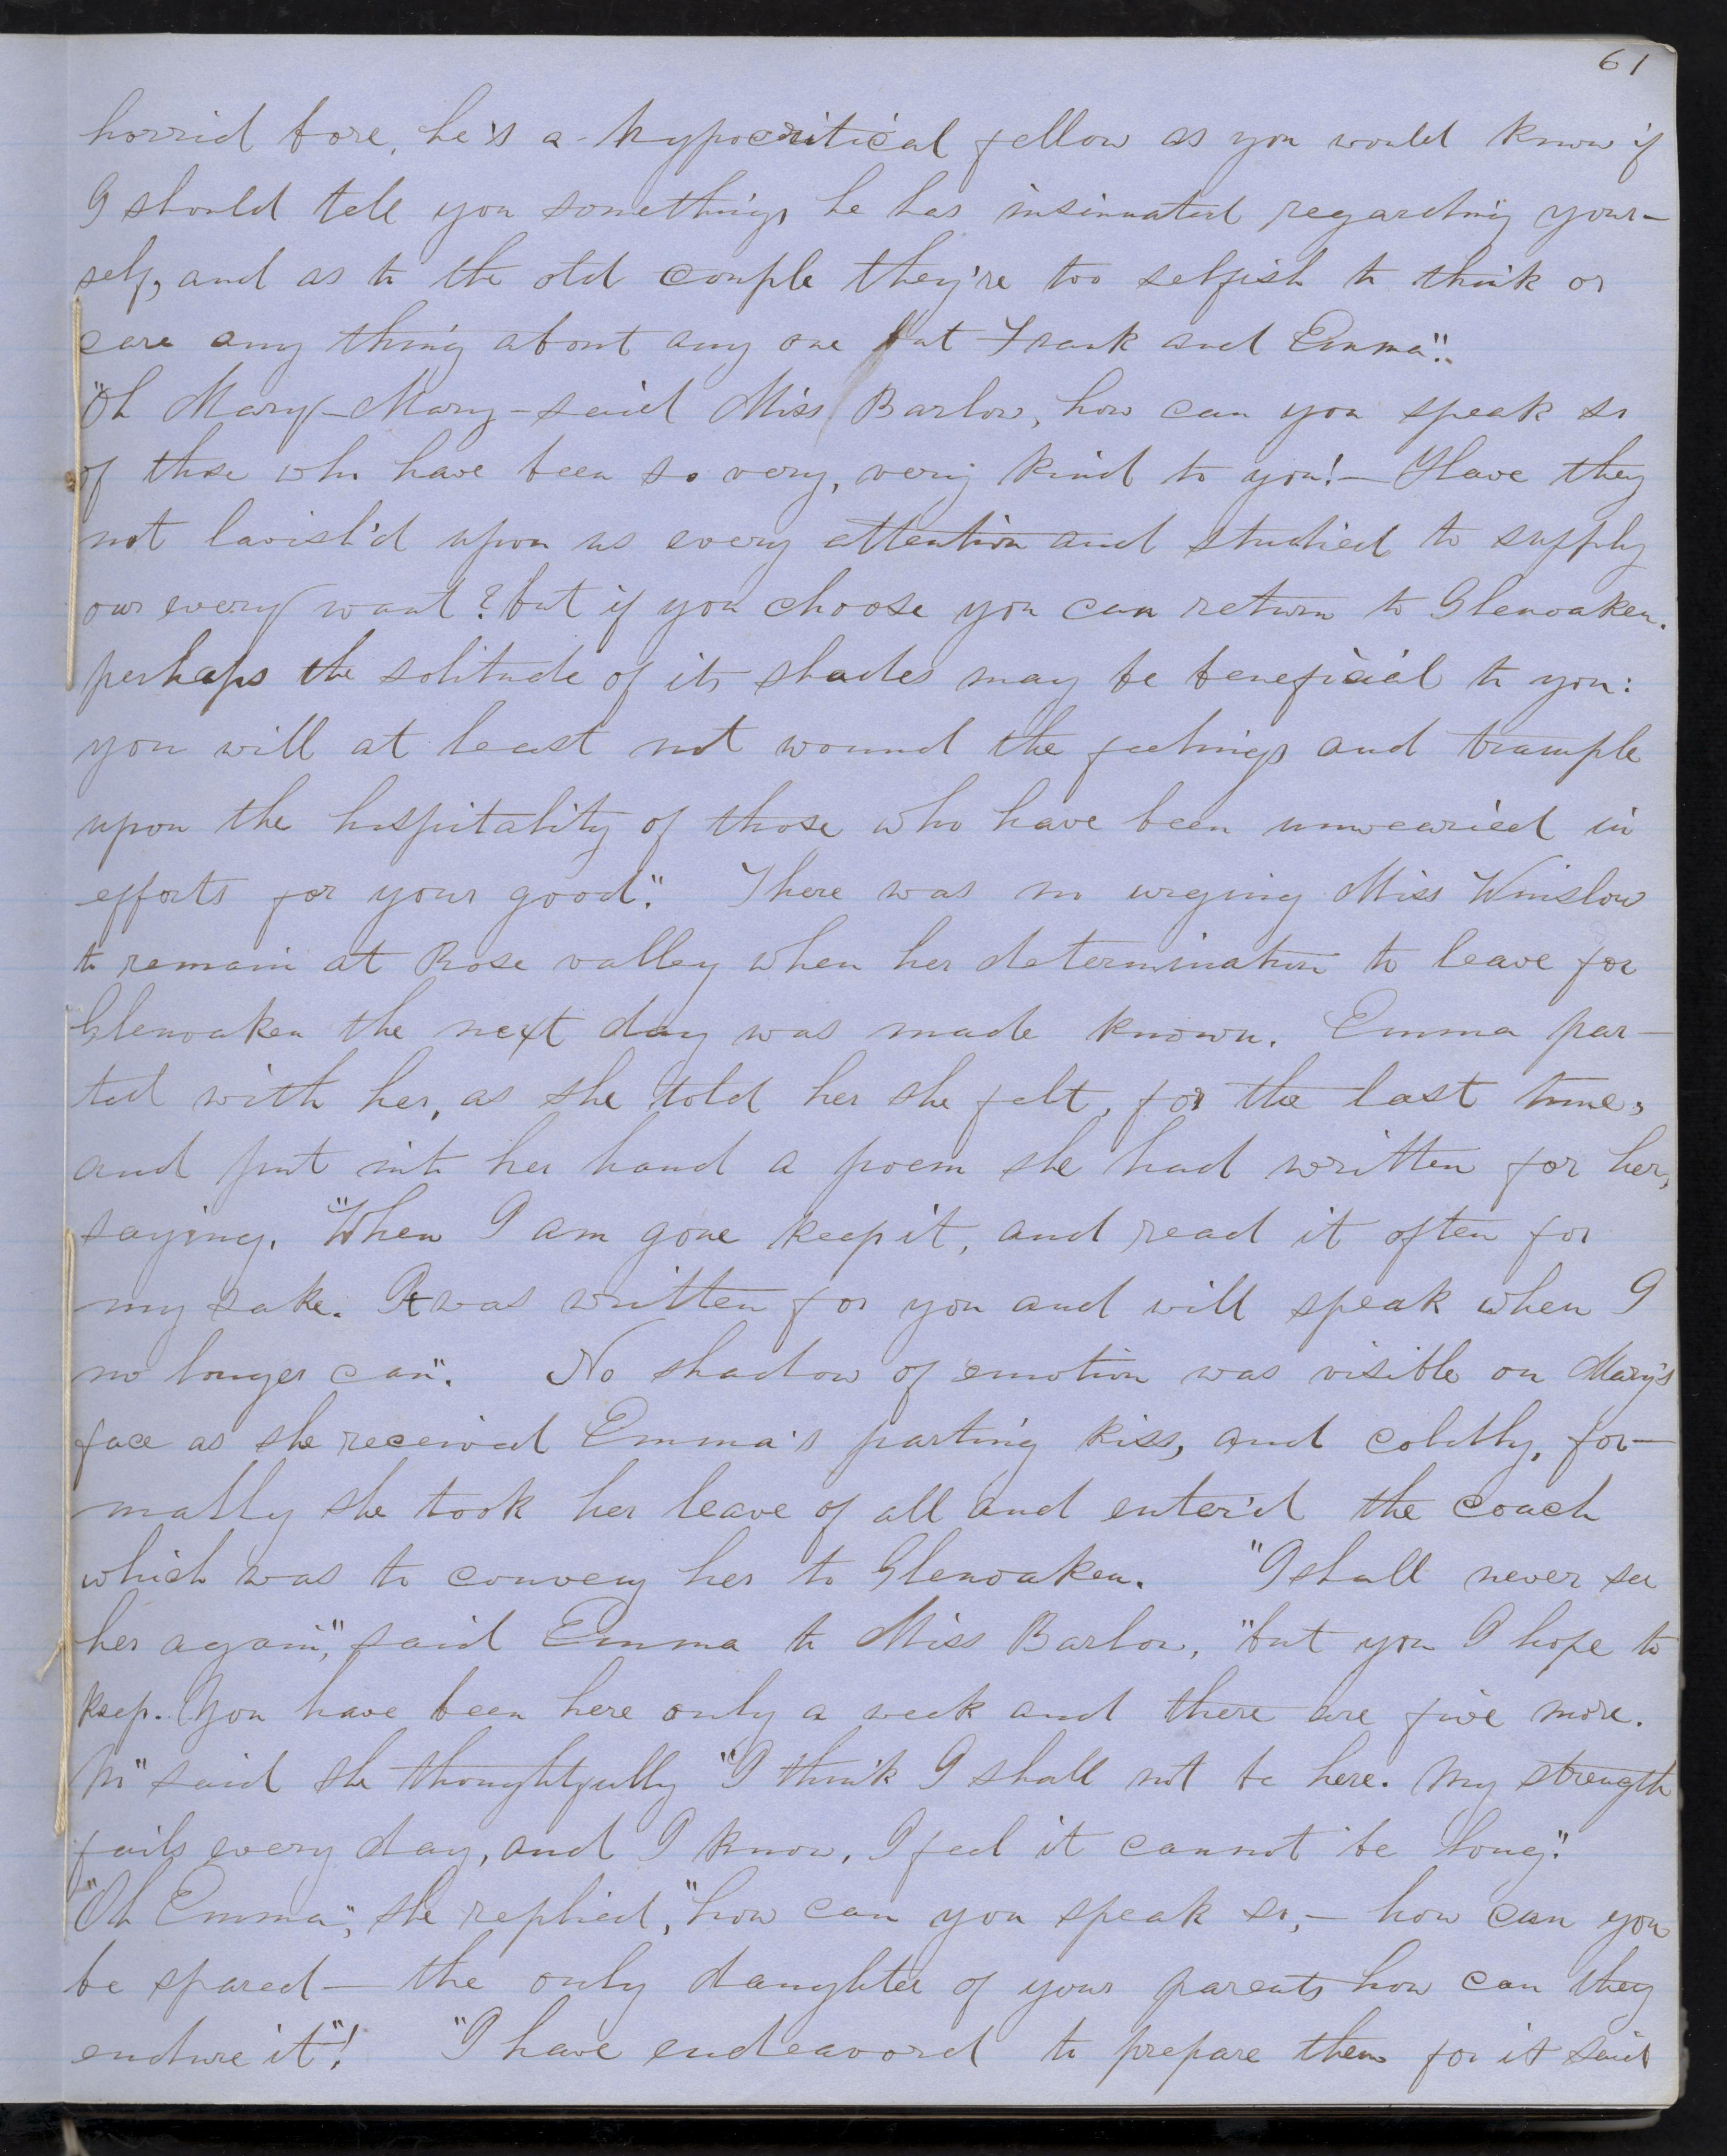 61
horrid bore, he's a hypocritical fellow as you would know if
I should tell you somethings he has insinuated regarding your-
self, and as to the old couple they're too selfish to think or
care any thing about any one but Frank and Emma".
"Oh Mary - Mary - said Miss Barlow, how can you speak so
of those who have been so very, very kind to you! - Have they
not lavish'd upon us every attention and studied to supply
our every want? but if you choose you can return to Glenoaken.
perhaps the solitude of its shades may be beneficial to you:
you will at least not wound the feelings and trample
upon the hospitality of those who have been unwearied in
efforts for your good." There was no urging Miss Winslow
to remain at Rose valley when her determination to leave for
Glenoaken the next day was made known. Emma par-
ted with her, as she told her she felt, for the last time,
and put into her hand a poem she had written for her,
saying, "When I am gone keep it, and read it often for
my sake. It was written for you and will speak when I
no longer can". No shadow of emotion was visible on Mary's
face as she received Emma's parting kiss, and coldly, for-
mally she took her leave of all and enter'd the coach
which was to convey her to Glenoaken. "I shall never see
her again", said Emma to Miss Barlow, "but you I hope to
keep. You have been here only a week and there are five more.
No" said she thoughtfully "I think I shall not be here. My strength
fails every day, and I know, I feel it cannot be long".
"Oh Emma", she replied, "how can you speak so, - how can you
be spared - the only daughter of your parents how can they
endure it"! "I have endeavord to prepare them for it said